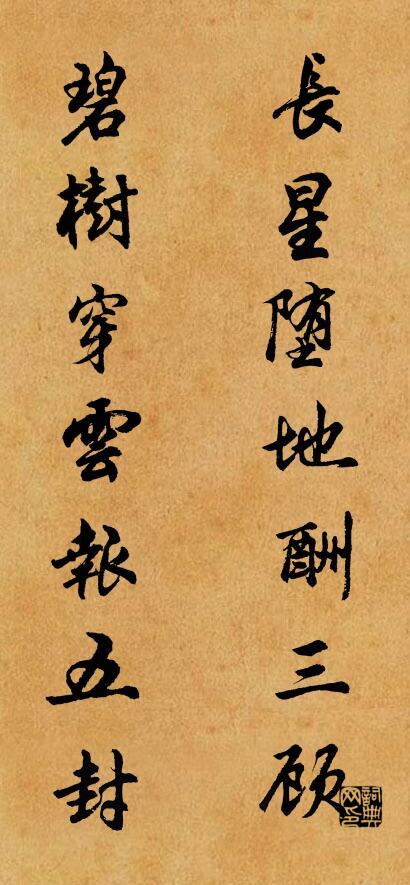 長星堕地酬三顾
碧樹穿雲報五封
詞典网印